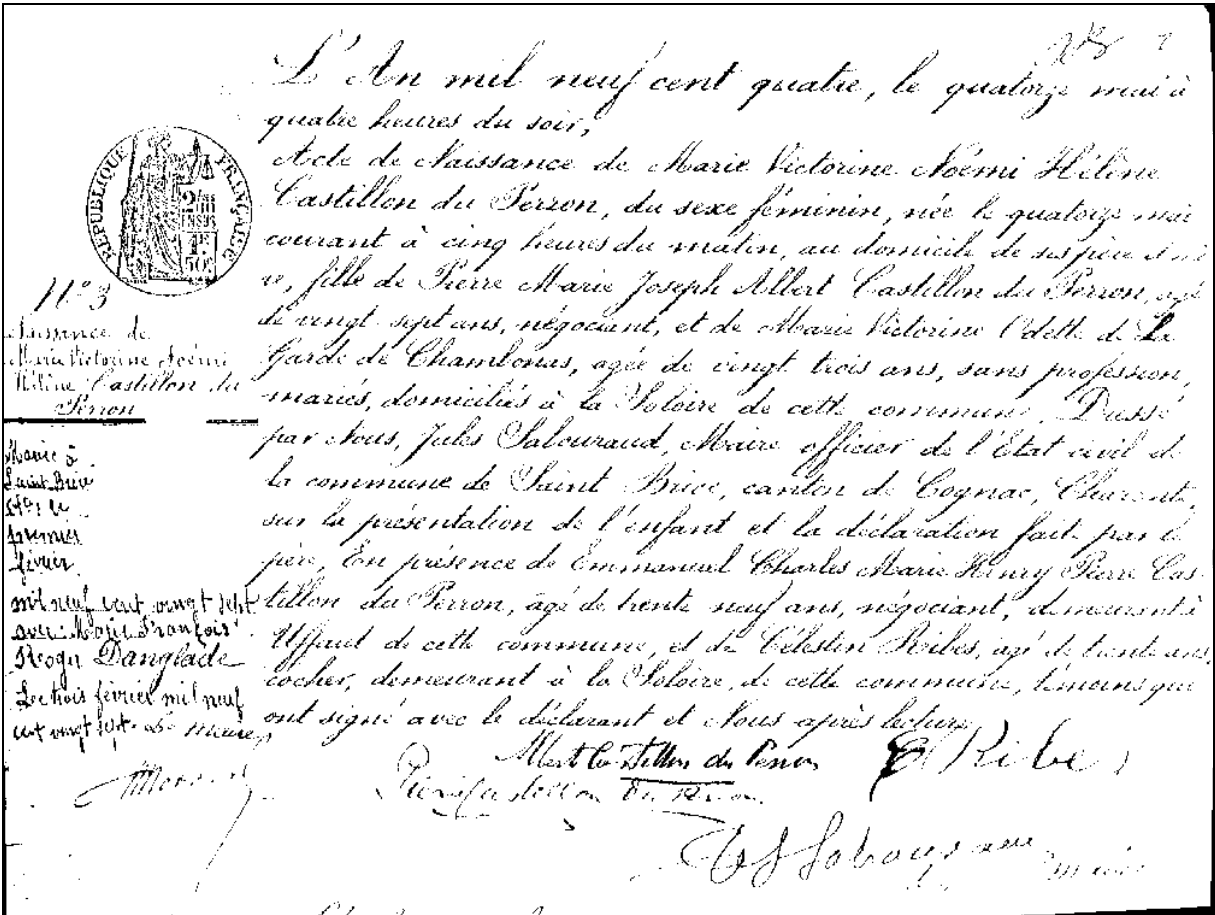 L'An mil neuf cent quatre, le quatorze mai à
quatre heures du soir,
Acte de Naissance de Marie Victorine Noémi Hélène
Castillon du Perron, du sexe féminin, née le quatorze mai
courant à cinq heures du matin, au domicile de ses père et mè
re, fille de Pierre Marie Joseph Albert Castillon du Perron, agé
de vingt sept ans, négociant, et de Marie Victorine Odette de La
Garde de Chambonas, agée de vingt trois ans, sans profession,
mariés, domiciliés à la Soloire de cette commune. Dressé
par Nous, Jules Salouraud, Maire officier de l'Etat civil de
la commune de Saint Brice, canton de Cognac, Charente,
sur la présentation de l'enfant et la déclaration faite par le
père, En présence de Emmanuel Charles Marie Henry Pierre Cas
tillon du Perron, agé de trente neuf ans, négociant, demeurant à
Uffaut de cette commune, et de Célestin Ribes, agé de trente ans,
cocher, demeurant à la Soloire, de cette commune, témoins qui
ont signé avec le déclarant et Nous après lecture
Albert Castillon du Perron
Ribes
Pierre Castillon du Perron
maire
REPUBLIQUE FRANÇAISE
N° 3
Naissance de
Marie Victorine Noémi
Hélène Castillon du
Perron
Mariée à
Saint Brice
le
premier
février
mil neuf cent vingt sept
avec Marie François
Roger Danglade
Le trois février mil neuf
cent vingt sept. Le maire,